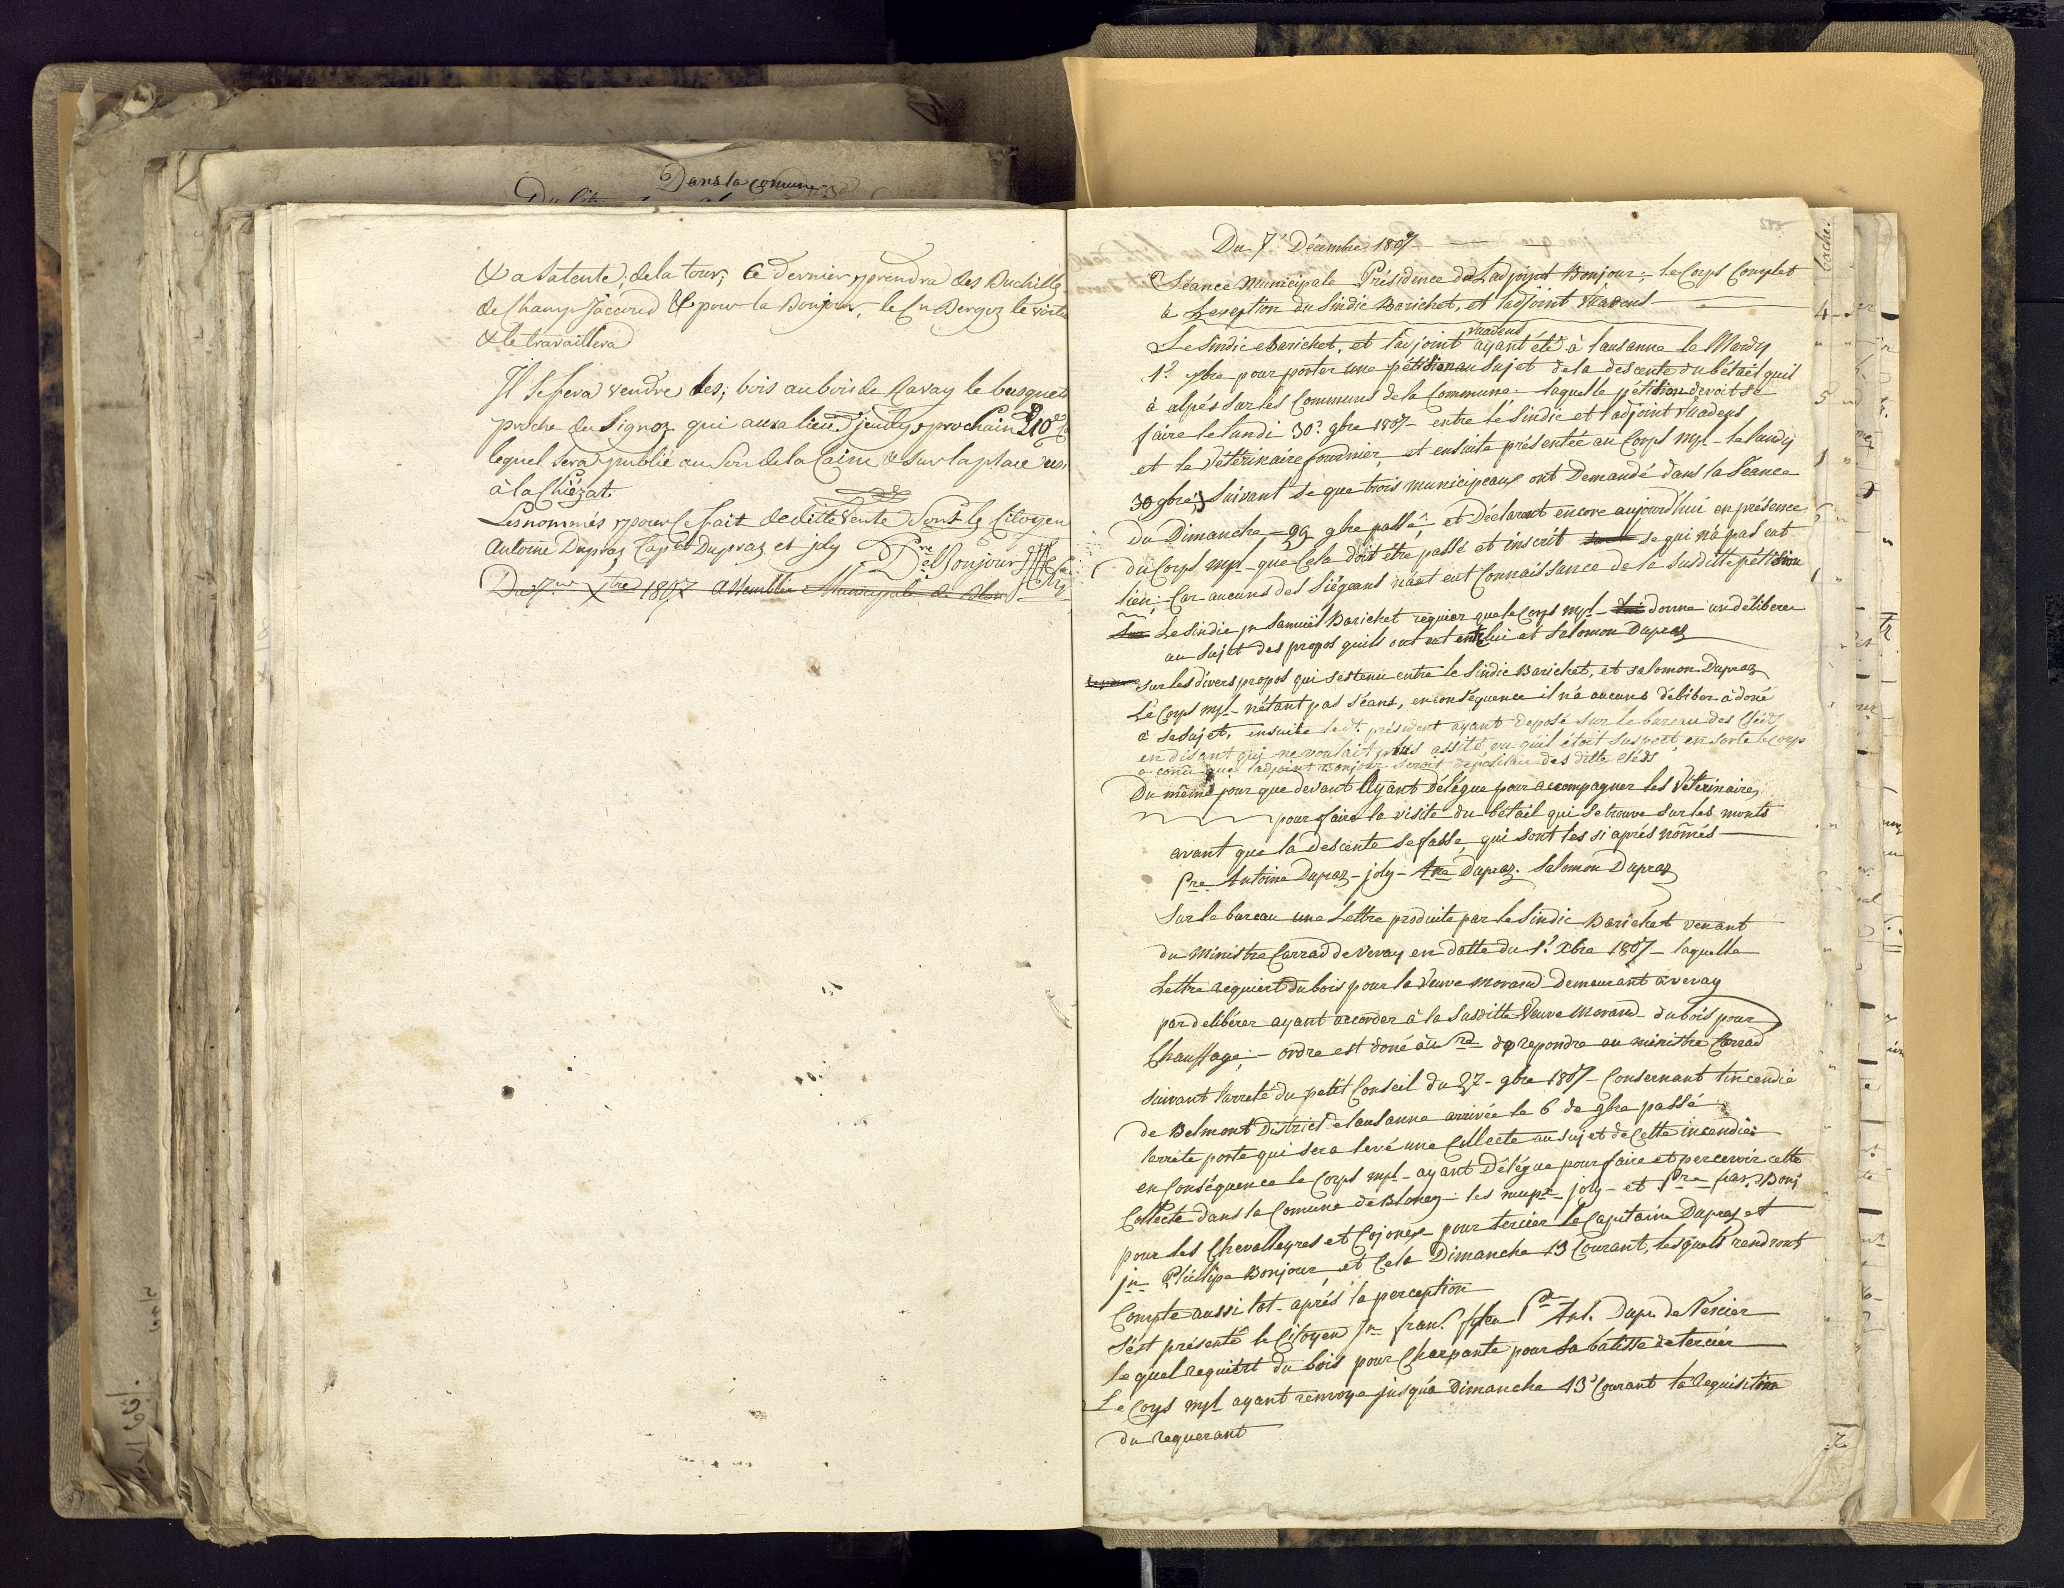 Dans la comune
& a Satente; de la tour; Ce dernier prendra des Duchille
de Champ Jaccoud & pour la Bonjour, le Cn Dergoz le voitu
& le travaillera
Il Se fera vendre des; bois au bois de Ravay le busquet
proche du Signoz qui aura lieu jeudy prochain 10e
lequel Sera publié au Son de la Caisse & Sur la place
à la Chiézat.
Les nommés pour le fait de ditte Vente Sont le Citoyen
Antoine Dupraz Capt Dupraz et joly Pre Bonjour
Du 7me Xbre 1807 Assemblée Municipale de Blon
Du 7e Décembre 1807
Séance Municipale Présidence de Ladjoint Bonjour; le Corps Complet
à Lexeption du Sindic Barichet, et ladjoint Madeus
Madeus
Le Sindic Barichet, et ladjoint ayant été à lausanne le Mardy
1e xbre pour porter une pétition au Sujet de la descente du bétail quil
à alpés Sur les Communs de la Commune; laquelle pétition devoit Se
faire le lundi 30e 9bre 1807 entre le Sindic et l'adjoint Madeus
et le Vétérinaire fournier, et ensuite présentée au Corps mpl le lundy
30 9bre; Suivant Se que trois municipeaux ont Demandé dans la Séance
du Dimanche 29 9bre passé, et Déclarent encore aujourd'hui en présence
du Corps mpl que Cela doit être passé et inscrit se qui n'a pas eut
lieu; Car aucuns des Siégeans n'aet eut Connaissance de la Susditte pétition
Le Sindic jn Samuël Barichet requier que le Corps mpl donne un délibere
au Sujet des propos quils ont eut entre lui et Salomon Dupraz
sur les divers propos qui sestenu entre le Sindic Barichet, et salomon Dupraz
Le Corps mpl n'étant pas séans, en conséquence il n'a aucuns déliber à doné
à Se Sujet, ensuite le dt président ayant déposé sur le bureau des Cléds
en disant qui ne voulait plus assité, vu qu'il étoit Suspect, en sorte le Corp
a conüe que ladjoint Bonjour Serois depositau des ditte Cléds
Du même jour que devant Ayant Délégue pour accompagner les Vétérinaire
pour faire la visite du betail qui se trouve sur les monts
avant que la descente se fasse, qui sont les si après només
Pre Antoine Dupraz - joly - Ane Dupraz. Salomon Dupraz
Sur le bureau une Lettre produite par le Sindic Barichet venant
du Ministre Carrad de Vevay en datte du 1e Xbre 1807 laquelle
Lettre requiert du bois pour la Veuve Morand Demeurant a vevay
par delibérer ayant accorder à la Susditte Veuve Morand du bois pour
Chauffage; ordre est doné au de repondre au ministre Carrad
suivant larreté du petit Conseil du 27 9bre 1807 Consernant lincendie
de Belmont District de lausanne arrivée le 6 de 9bre passé
larrete porte qui sera levé une Collecte au sujet de Cette incendie
en Conséquence le Corps mpl ayant Délégue pour faire et percevoir cette
Collecte dans la Comune de Blonay les mupx joly et Pre fran. Bonj
pour les Chevalleyres et Cojonex pour tercier le Capitaine Dupraz et
jn Philipe Bonjour, et Cela Dimanche 13 Courant, lesquels rendront
Compte aussi tot après la perception
S'ést présenté le Citoyen jn fran. ffeu Ant. Dupr. de Tercier
le quel requiert du bois pour Charpante pour sa batisse de tercier
Le Corps mpl ayant renvoye jusqu'a Dimanche 13e Courant la requisition
du requerant